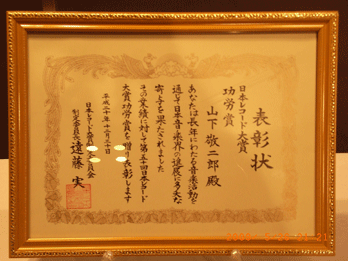 表彰状
日本レコード大賞
功労賞
山下敬二郎殿
あなたは長年にわたる音楽活動を
通じて日本音楽界の進展に多大な
寄与を果たされました
この業績に対して第五十回日本レコード
大賞功労賞を贈り表彰します
平成二十年十二月三十日
日本レコード大賞
制定委員長 遠藤 実